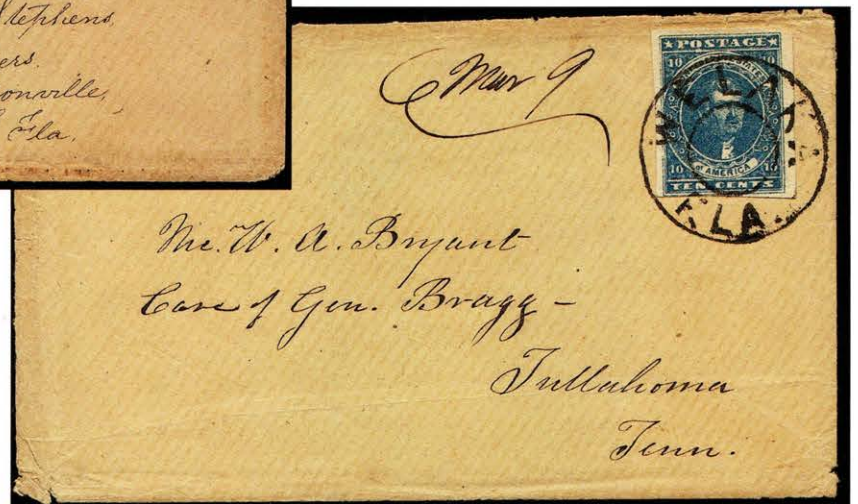 Stephens,
ers.
onville,
Fla.
Mar 9
★POSTAGE★
10 10
OF AMERICA
10 10
TEN CENTS
WELAKA
FLA.
Mr. W. A. Bryant
Care of Gen. Bragg –
Tullahoma
Tenn.